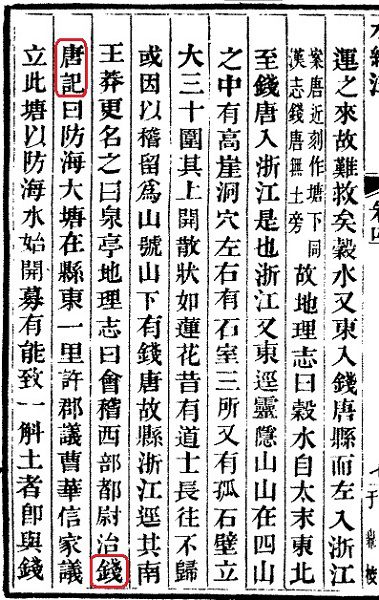 運之來故難救矣穀水又東入錢唐縣而左入浙江
案唐近刻作塘下同
漢志錢唐無土旁
故地理志曰穀水自太末東北
至錢唐入浙江是也浙江又東逕靈隱山山在四山
之中有高崖洞穴左右有石室三所又有孤石壁立
大三十圍其上開散狀如蓮花昔有道士長往不歸
或因以稽留爲山號山下有錢唐故縣浙江逕其南
王莽更名之曰泉亭地理志曰會稽西部都尉治錢
唐記曰防海大塘在縣東一里許郡議曹華信家議
立此塘以防海水始開募有能致一斛土者卽與錢